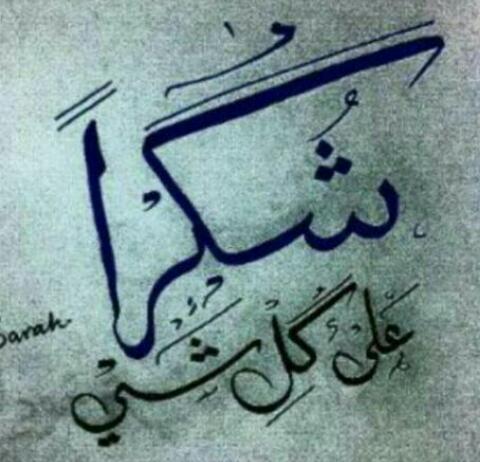 شُكراً
عَلى كُلِ شَي
Sarah